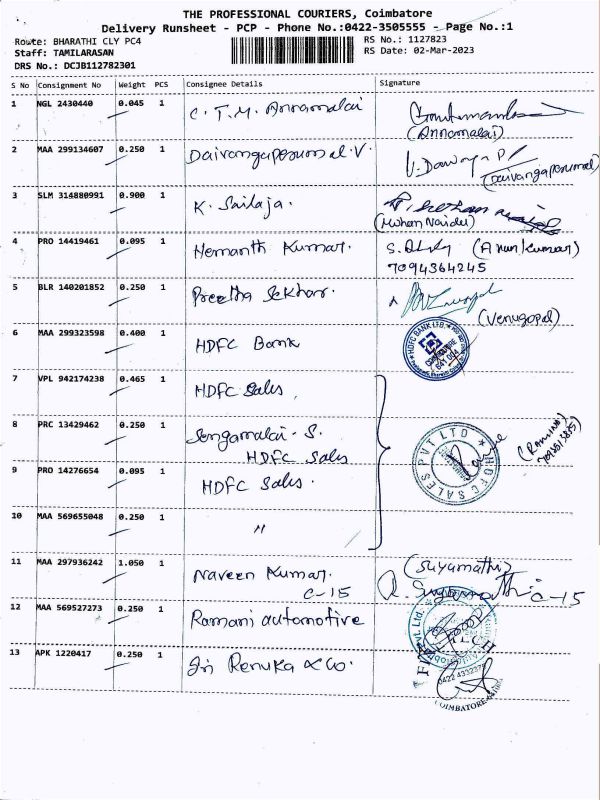 THE PROFESSIONAL COURIERS, Coimbatore
Delivery Runsheet - PCP - Phone No.:0422-3505555 - Page No.:1
Route: BHARATHI CLY PC4
RS No.: 1127823
Staff: TAMILARASAN
RS Date: 02-Mar-2023
DRS No.: DCJB112782301
S No Consignment No Weight PCS Consignee Details Signature
1 NGL 2430440 0.045 1 C. T. M. Annamalai
(Annamalai)
2 MAA 299134607 0.250 1 Daivangaperumal. V.
(Daivangaperumal)
3 SLM 314880991 0.900 1 K. Sailaja.
(Mohan Naidu)
4 PRO 14419461 0.095 1 Hemanth Kumar. (Arunkumar)
7094364245
5 BLR 140201852 0.250 1 Preetha Sekhar.
(Venugopal)
6 MAA 299323598 0.400 1 HDFC Bank
HDFC BANK LTD.
COIMBATORE
641 004
7 VPL 942174238 0.465 1 HDFC Sales
8 PRC 13429462 0.250 1 Sengamalai - S.
HDFC Sales
HDFC SALES PVT LTD
9 PRO 14276654 0.095 1 HDFC Sales.
10 MAA 569655048 0.250 1 "
11 MAA 297936242 1.050 1 Naveen Kumar. (Suyamathi)
C-15 C-15
12 MAA 569527273 0.250 1 Ramani automotive
13 APK 1220417 0.250 1 Sri Renuka & Co.
COIMBATORE